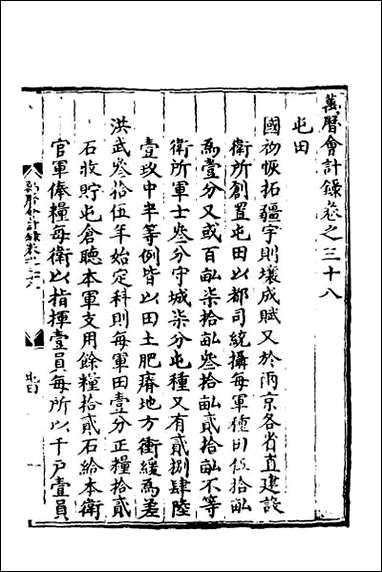 萬曆會計錄卷之三十八
屯田
國初恢拓疆宇則壤成賦又於兩京各省直建設
衛所創置屯田以都司統攝每軍種田伍拾畝
為壹分又或百畝柒拾畝叁拾畝貳拾畝不等
衛所軍士叁分守城柒分屯種又有貳捌肆陸
壹玖中半等例皆以田土肥瘠地方衝緩為差
洪武叁拾伍年始定科則每軍田壹分正糧拾貳
石收貯屯倉聽本軍支用餘糧拾貳石給本衛
官軍俸糧每衛以指揮壹員每所以千戶壹員
萬曆會計錄卷三八